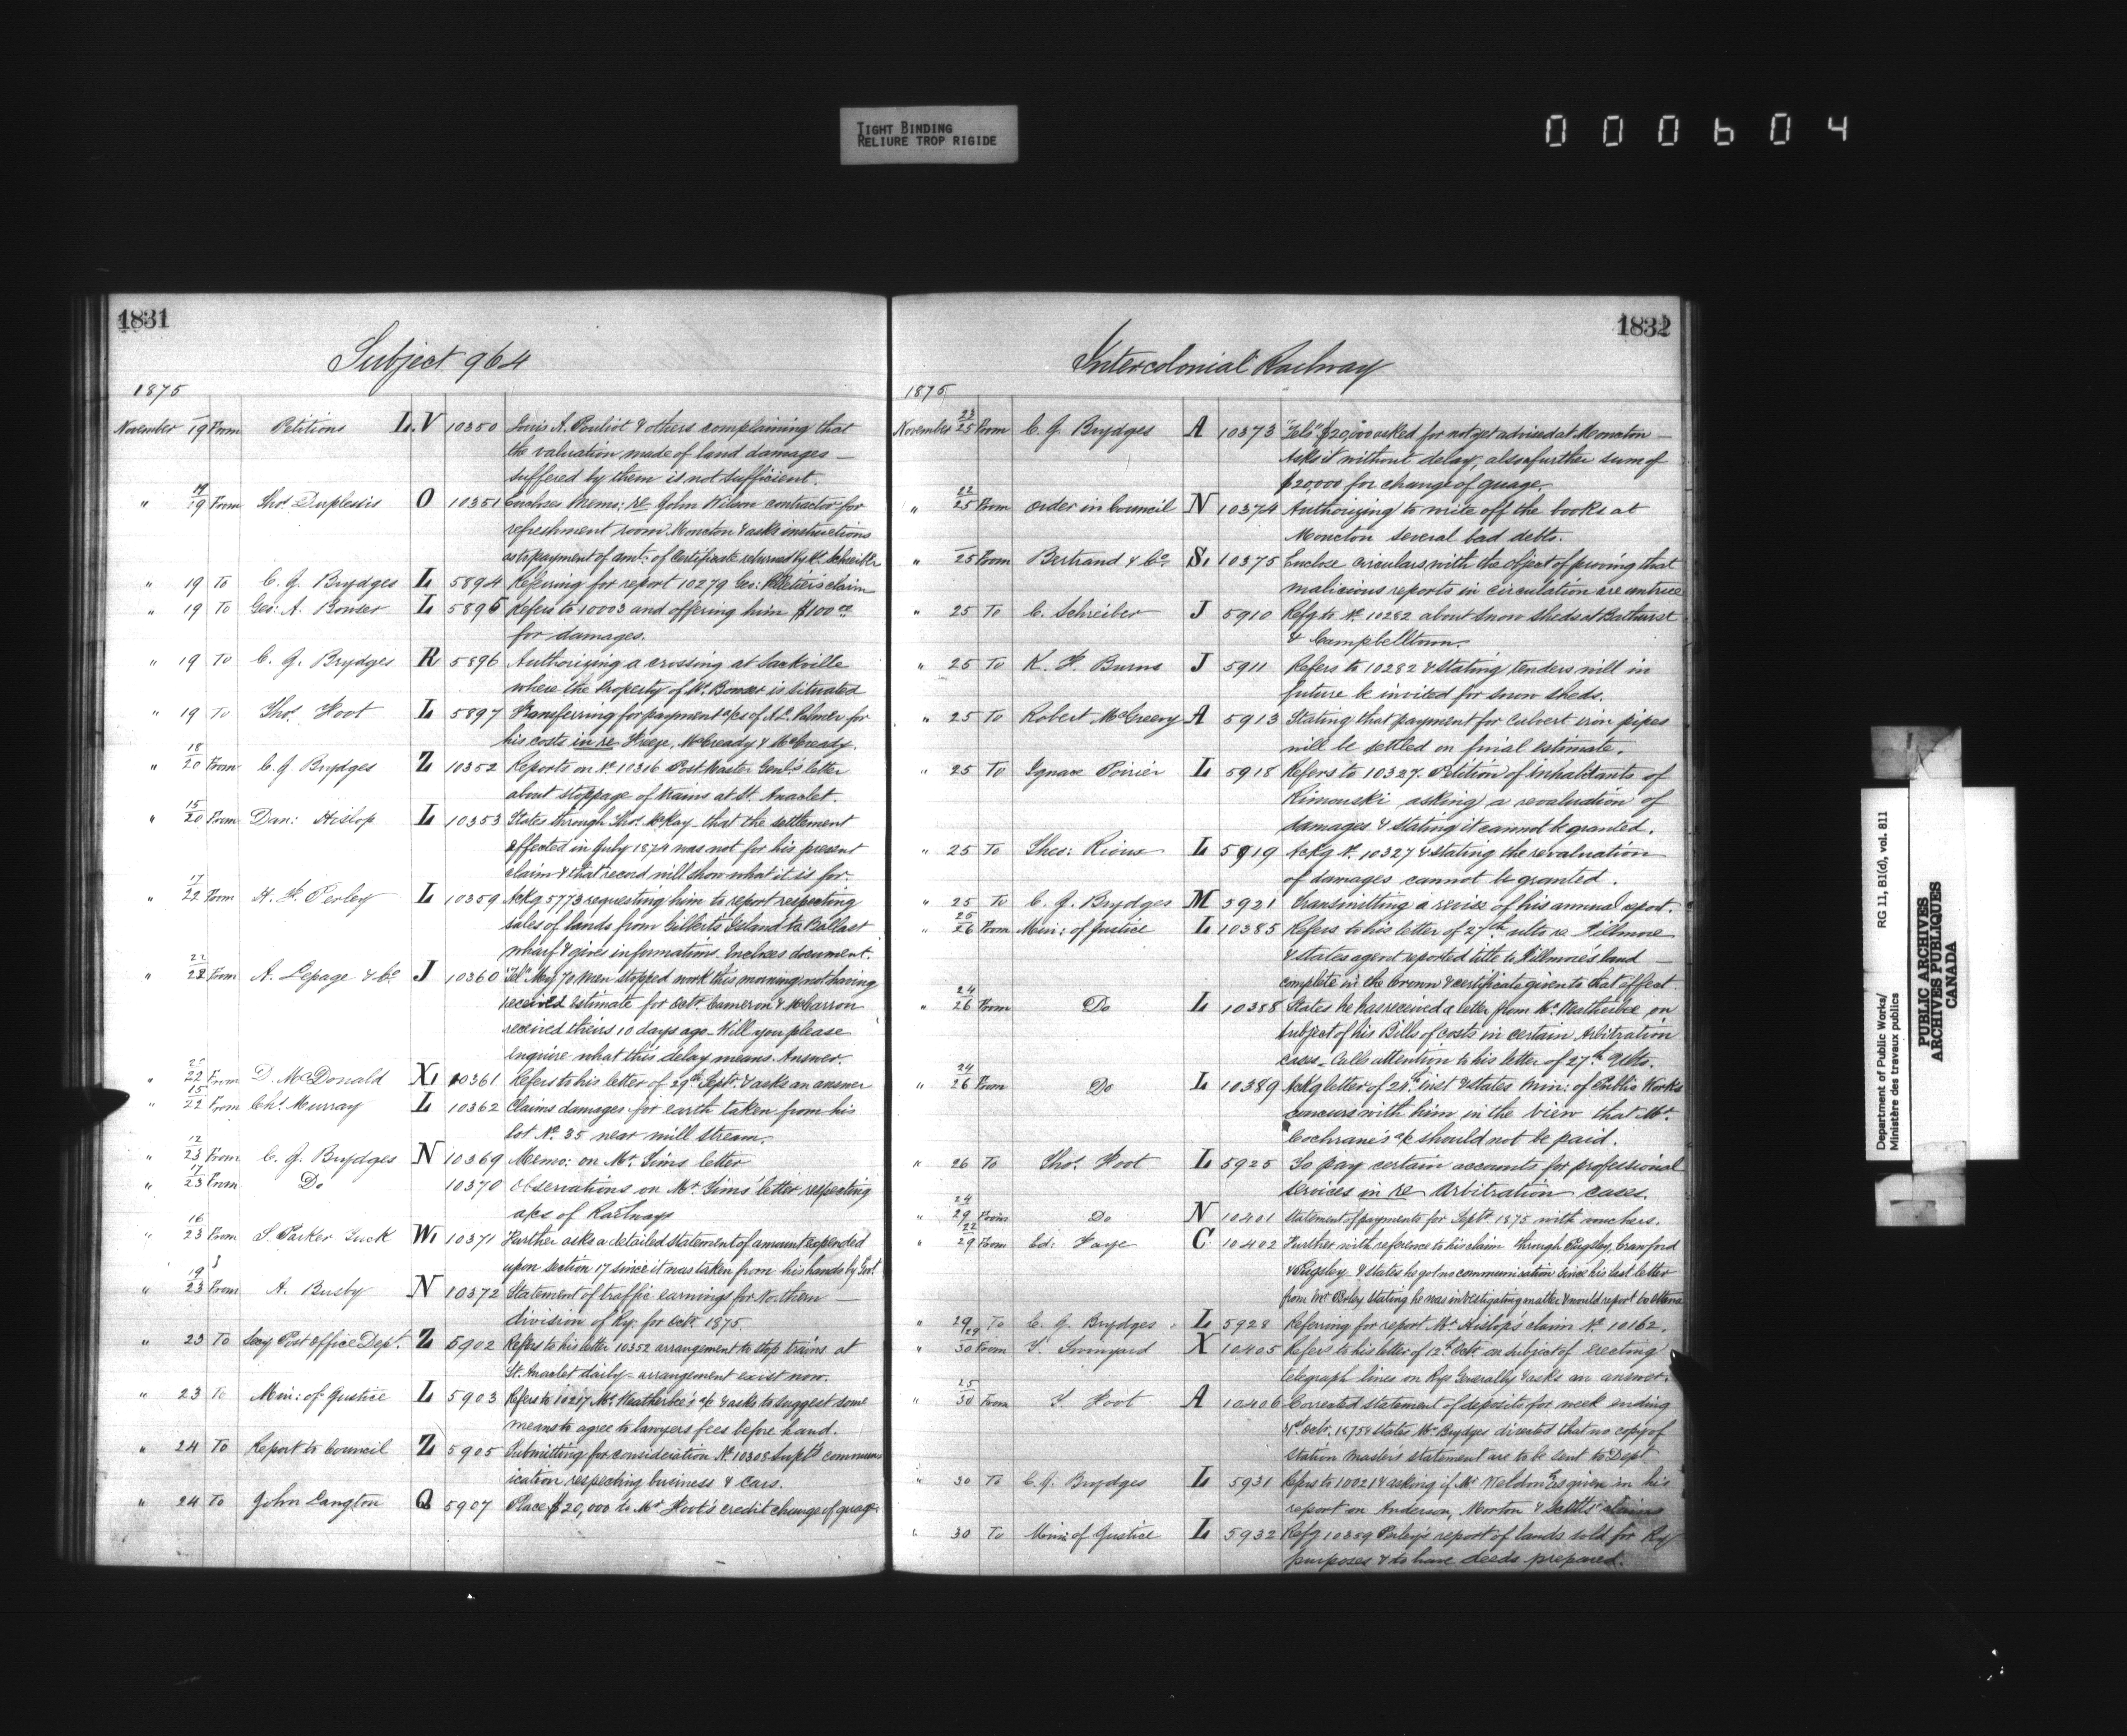 TIGHT BINDING
RELIURE TROP RIGIDE
000604
1831
Subject 964
1875
November 19 From Petitions L.V 10350 Louis A. Pouliot & others complaining that
the valuation made of land damages —
suffered by them is not sufficient.
" 17/19 From Thos. Duplessis O 10351 Encloses Memo: re John Wilson contractor for
refreshment room Moncton & asks instructions
as to payment of amt: of Certificate returned by C. Schreiber
" 19 To C. J. Brydges L 5894 Referring for report 10279 Geo: Pelletier's claim
" 19 To Geo: A. Bowser L 5895 Refers to 10003 and offering him $100.00
for damages.
" 19 To C. J. Brydges R 5896 Authorizing a crossing at Sackville
where the Property of Mr. Bowser is situated
" 19 To Thos. Foot L 5897 Transferring for payment a/cs of A. L. Palmer for
his costs in re Freeze, McCready & McCready.
" 18/20 From C. J. Brydges Z 10352 Reports on No. 10316 Post Master Genl's letter
about stoppage of trains at St. Anaclet.
" 15/20 From Dan: Hislop L 10353 States through Thos. McKay - that the settlement
effected in July 1874 was not for his present
claim & that record will show what it is for.
" 17/22 From H. F. Perley L 10359 Ackg. 5773 requesting him to report respecting
sales of lands from Gilbert's Island to Ballast
wharf & gives information. Incloses document.
" 22/22 From A. Lepage & Co J 10360 "Tel" My 70 Men stopped work this morning not having
received Estimate for Octr. Cameron & McCarron
received theirs 10 days ago - Will you please
enquire what this delay means. Answer.
" 22 From D. McDonald X. 10361 Refers to his letter of 29th Septr. & asks an answer
" 15/22 From Chs. Murray L 10362 Claims damages for earth taken from his
lot No. 35 near mill stream.
" 12/23 From C. J. Brydges N 10369 Memo: on Mr. Tims letter
" 17/23 From Do 10370 Observations on Mr. Tims' letter respecting
a/cs of Railways
" 16/23 From S. Parker Tuck W. 10371 Further asks a detailed statement of amount expended
upon section 17 since it was taken from his hands by Govt.
" 19/23 From A. Busby N 10372 Statement of traffic earnings for Northern —
division of Ry. for Octr. 1875.
" 23 To Secy Post Office Dept. Z 5902 Refers to his letter 10352 arrangement to stop trains at
St. Anaclet daily - arrangement exist now.
" 23 To Min: of Justice L 5903 Refers to 10217 Mr. Weatherbee's a/c & asks to suggest some
means to agree to lawyers fees before hand.
" 24 To Report to Council Z 5905 Submitting for consideration No. 10308 Supt's commun
ication respecting business & cars.
" 24 To John Langton Q 5907 Place $20,000 to Mr Foot's credit change of guage
1832
Intercolonial Railway
1875
November 23/25 From C. J. Brydges A 10373 "Tel" $20,000 asked for not yet advised at Moncton —
Asks it without delay, also a further sum of
$20,000 for change of guage.
" 22/25 From Order in Council N 10374 Authorizing to write off the books at
Moncton several bad debts.
" 25 From Bertrand & Co. S. 10375 Enclose circulars with the object of proving that
malicious reports in circulation are untrue
" 25 To C. Schreiber J 5910 Refg to No. 10282 about snow sheds at Bathurst
& Campbelltown.
" 25 To K. F. Burns J 5911 Refers to 10282 & stating tenders will in
future be invited for snow sheds.
" 25 To Robert McGreevy A 5913 Stating that payment for culvert iron pipes
will be settled on final estimate.
" 25 To Ignace Poirier L 5918 Refers to 10327. Petition of inhabitants of
Rimouski asking a revaluation of
damages & stating it cannot be granted.
" 25 To Thos: Rioux L 5919 Ackg No. 10327 & stating the revaluation
of damages cannot be granted.
" 25 To C. J. Brydges M 5921 Transmitting a revise of his annual report.
" 25/26 From Min: of Justice L 10385 Refers to his letter of 27th ulto re Fillmore
& states agent reported title to Fillmore's land —
complete in the Crown & certificate given to that effect.
" 24/26 From Do L 10388 States he has received a letter from Mr. Weatherbee on
subject of his Bills of costs in certain Arbitration
cases - Calls attention to his letter of 27th Ulto.
" 24/26 From Do L 10389 Ackg letter of 24th inst & states Min: of Public Works
concurs with him in the view that Mr.
Cochrane's a/c should not be paid.
" 26 To Thos. Foot L 5925 To pay certain accounts for professional
services in re Arbitration cases.
" 24/29 From Do N 10401 Statement of payments for Septr. 1875 with vouchers.
" 22/29 From Ed: Faye C 10402 Further with reference to his claim through Pugsley, Crawford
& Pugsley & states he got no communication since his last letter
from Mr Perley stating he was investigating matter & would report to Ottawa
" 29 To C. J. Brydges L 5928 Referring for report Mr. Hislop's claim No. 10162.
" 29/30 From T. Swinyard X 10405 Refers to his letter of 12th Octr. on subject of erecting
telegraph lines on Rys generally & asks an answer.
" 25/30 From T. Foot A 10406 Corrected statement of deposits for week ending
31st Octr. 1875 & states Mr Brydges directed that no copy of
Station Master's statement are to be sent to Dept
" 30 To C. J. Brydges L 5931 Refers to 10021 & asking if Mr Weldon is given in his
report on Anderson, Morton & claims
" 30 To Min: of Justice L 5932 Refg 10359 Perley's report of lands sold for Ry
purposes & to have deeds prepared.
Department of Public Works/ RG 11, B1(d), vol. 811
Ministère des travaux publics
PUBLIC ARCHIVES
ARCHIVES PUBLIQUES
CANADA